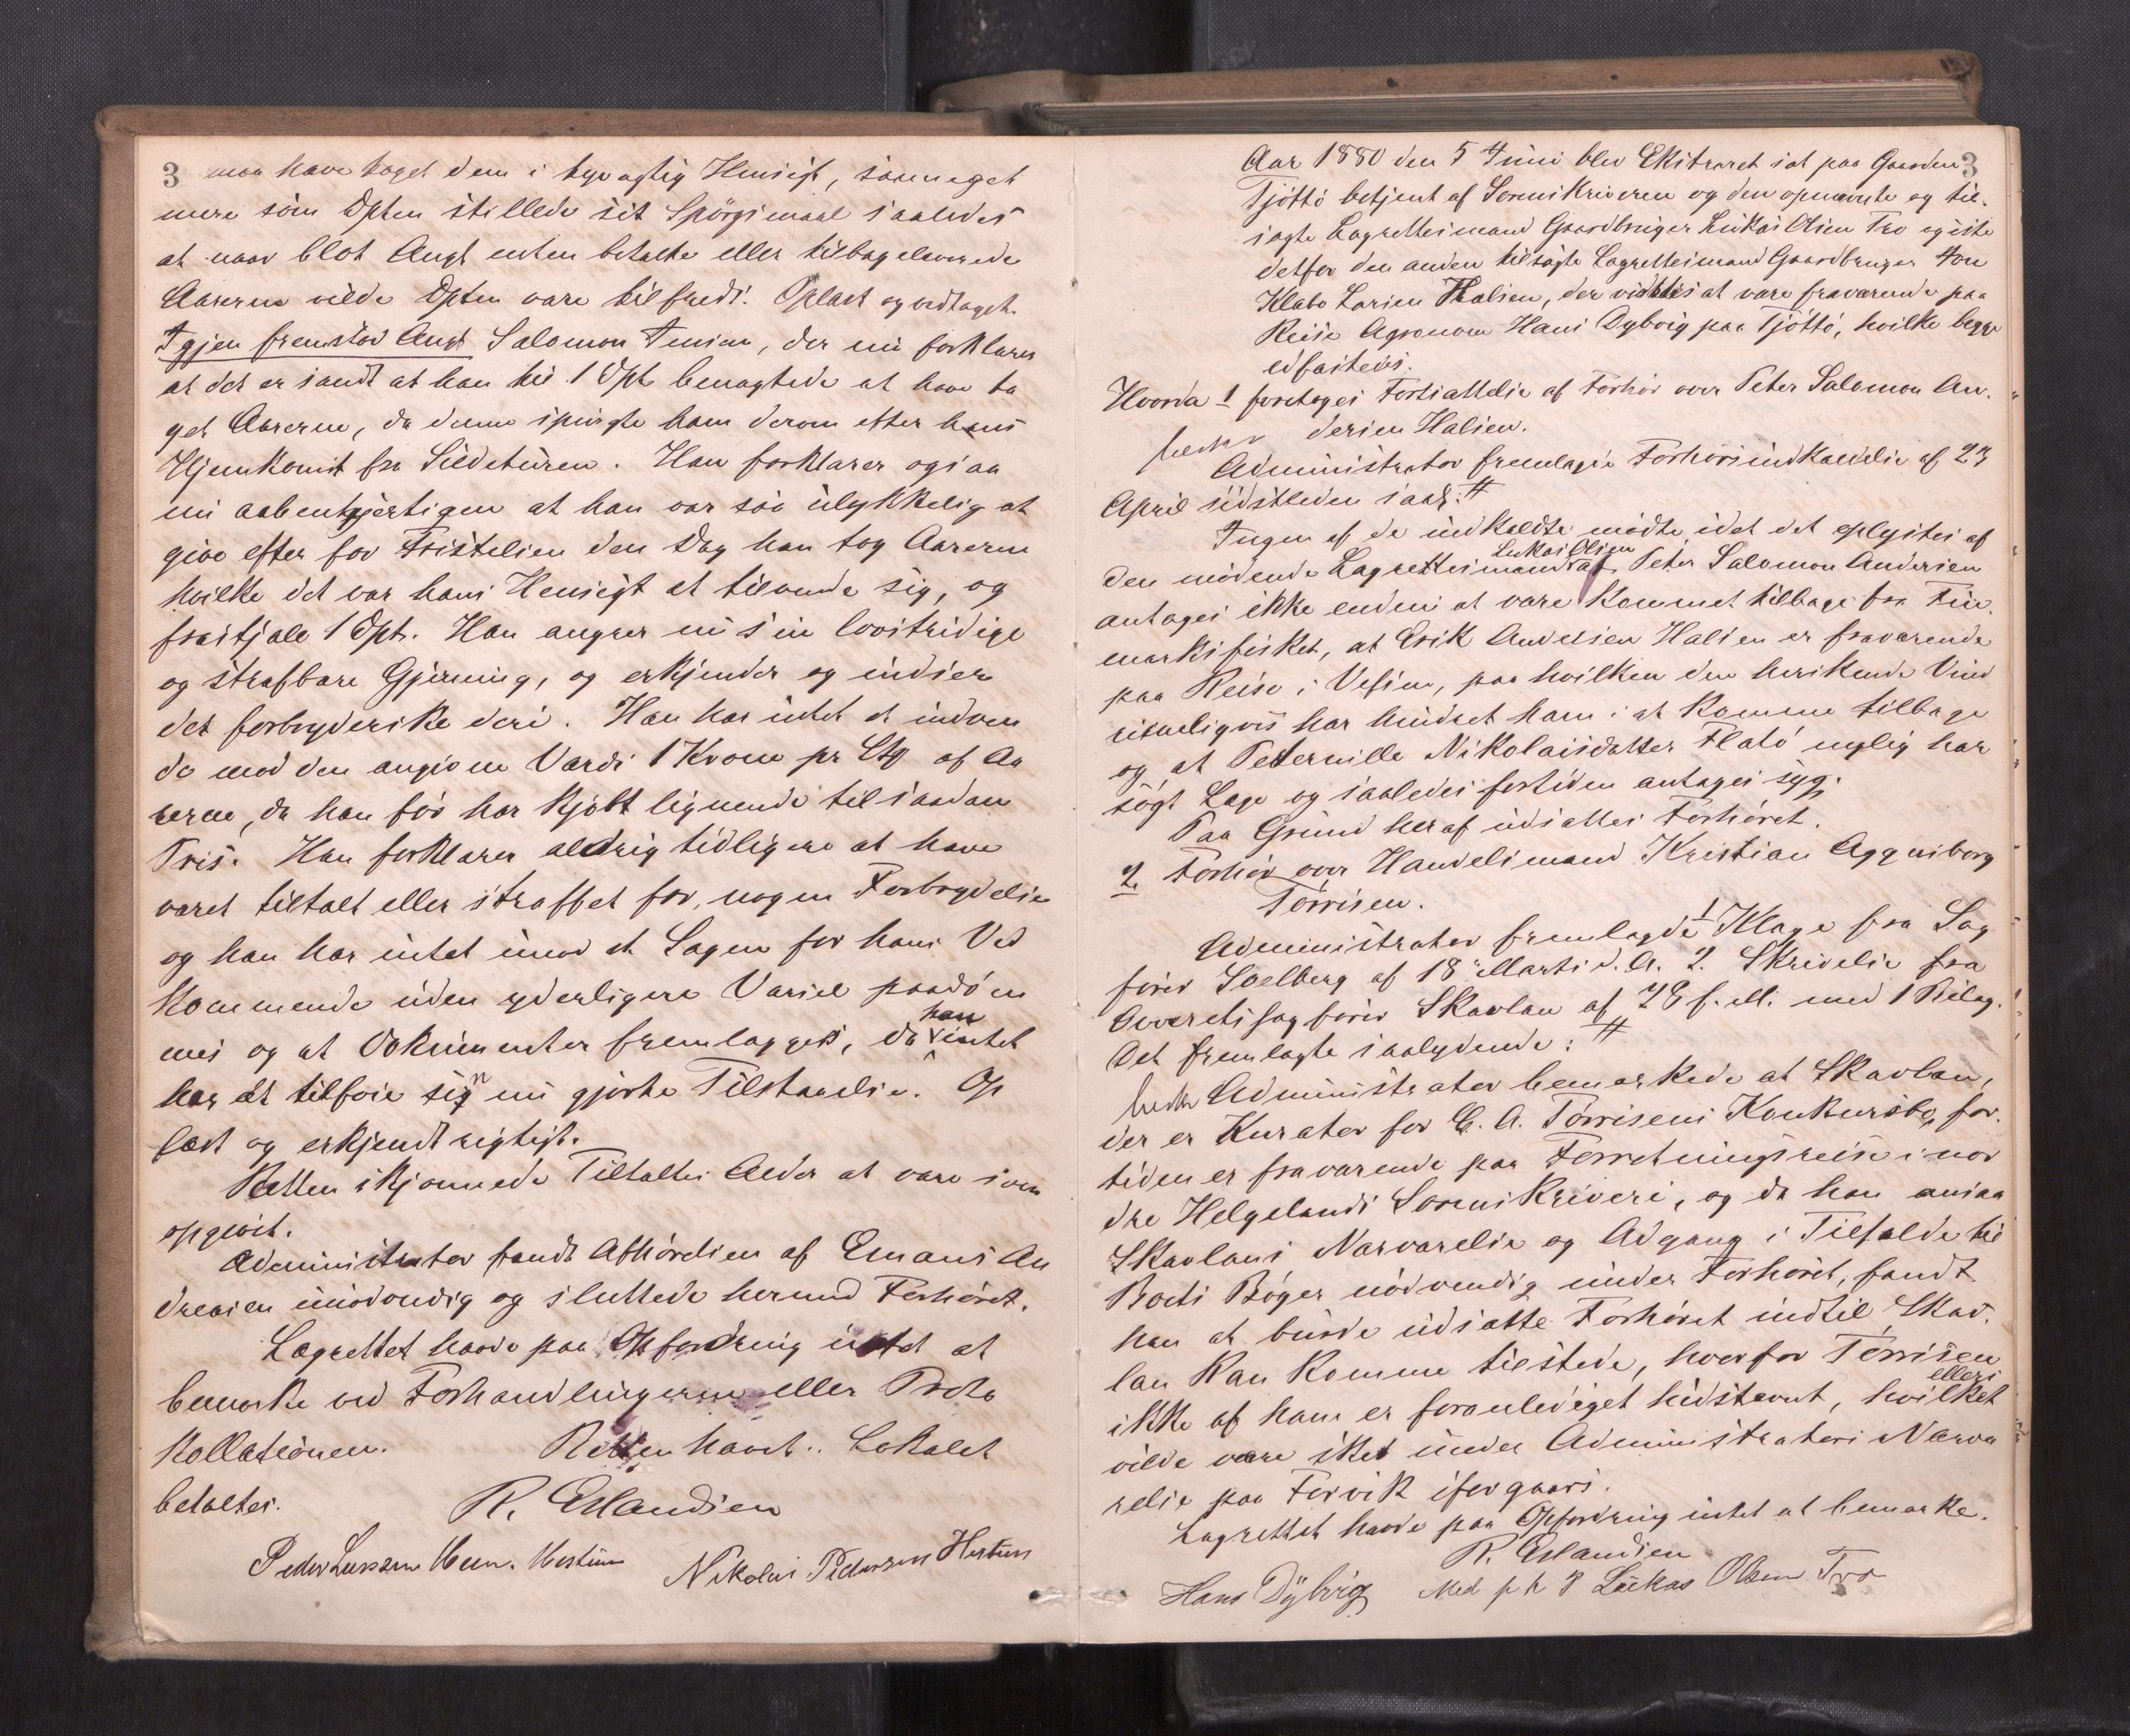 3 maa have taget dem i tyvagtig Hensigt, saameget
mere som Dptn stillede sit Spörgsmaal saaledes
at naar blot Angt enten betalte eller tilbageleverede
Aarerne vilde Dptn være tilfreds. Oplæst og vedtaget.
Igjen fremstod Angt Salomon Jensen, der nu forklarer
at det er sandt at han til 1 Dpt benægtede at have ta
get Aarerne, da denne spurgte ham derom efter hans
Hjemkomst fra Sildeturen. Han forklarer ogsaa
nu aabenhjertigen at han var saa ulykkelig at
give efter for Fristelsen den Dag han tog Aarerne
hvilke det var hans Hensigt at tilvende sig, og
frastjale 1 Dpt. Han angrer nu sin lovstridige
og strafbare Gjerning, og erkjender og indser
det forbryderske deri. Han har intet at indven
de mod den angivne Værdi 1 Krone pr Stk af Aa
rerne, da han før har kjøbt lignende til saadan
Pris. Han forklarer aldrig tidligere at have
været tiltalt eller straffet for nogen Forbrydelse
og han har intet imod at Sagen for hans Ved
kommende uden yderligere Varsel paadöm
mes og at Dokumenter fremlægges, da han intet
har at tilföie sin nu gjorte Tilstaaelse. Op
læst og erkjendt rigtigt.
Retten skjønnede Tiltaltes Alder at være som
opgivet.
Administrator fandt Afhörelsen af Emans An
dreasen unödvendig og sluttede hermed Forhøret.
Lagrettet havde paa Opfordring intet at
bemærke ved Forhandlingerne eller Proto
kollationen. Retten hævet. Lokalet
betaltes. R. Erlandsen
Peder Larssen Nikolai Pedersen Hestun
Aar 1880 den 5 Juni blev Ekstraret sat paa Gaarden 3
Tjöttö betjent af Sorenskriveren og den opnævnte og til-
sagte Lagrettesmand Gaardbruger Lukas Olsen Tro og iste
detfor den anden tilsagte Lagrettesmand Gaardbruger Jon
Klabo Larsen Halsen, der vidstes at være fraværende paa
Reise Agronom Hans Dybvig paa Tjöttö, hvilke begge
edfæstedes.
Hvorda 1 foretoges Fortsættelse af Forhör over Peter Salomon An-
dersen Halsen.
Administrator fremlagde Forhörsindkaldelse af 23
April sidstleden saal: #
Ingen af de indkaldte mödte, idet det oplystes af
den mödende Lagrettesmand Lukas Olsen at Peter Salomon Andersen
antages ikke endnu at være kommet tilbage fra Fin-
marksfisket, at Erik Andersen Halsen er fraværende
paa Reise i Vefsen, paa hvilken den herskende Vind
rimeligvis har hindret ham i at komme tilbage
og at Peternille Nikolaisdatter Flatö nylig har
sögt Læge og saaledes fortiden antages syg.
Paa Grund heraf udsattes Forhöret.
2. Forhör over Handelsmand Kristian Aggersborg
Törrisen.
Administrator fremlagde 1 Klage fra Sag
förer Solberg af 18 Marts d. A. 2. Skrivelse fra
Overetssagförer Skavlan af 28 f. M. med 1 Bilag.
Det fremlagte saalydende: #
Administrator bemærkede at Skavlan,
der er Kurator for C. A. Törrisens Konkursbo, for
tiden er fraværende paa Forretningsreise i nor
dre Helgelands Sorenskriveri, og da han ansaa
Skavlans Nærværelse og Adgang i Tilfælde til
Boets Böger nödvendig under Forhöret, fandt
han at burde udsætte Forhöret indtil Skav-
lan kan komme tilstede, hvorfor Törrisen
ikke af ham er foranlediget hidstevnt, hvilket ellers
vilde være sket under Administrators Nærvæ
relse paa Forvik iforgaars.
Lagrettet havde paa Opfordring intet at bemærke.
R. Erlandsen
Hans Dÿbvig Med p k P Lúkas Olsen Tro